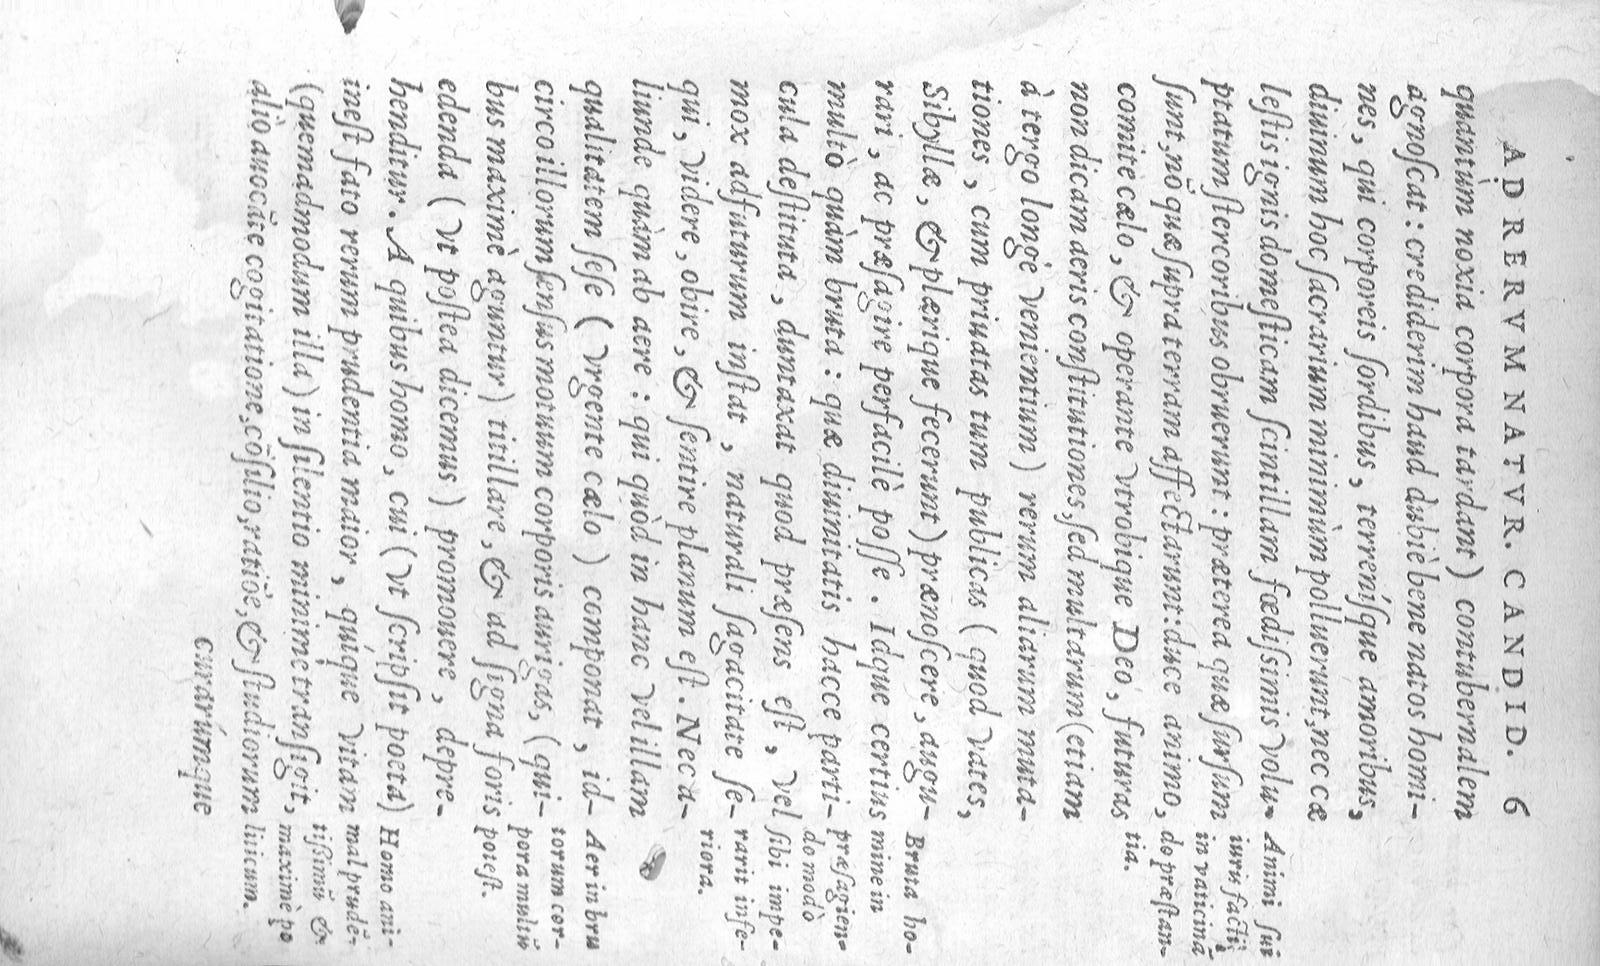 AD RERVM NATVR. CANDID. 6
quantùm noxia corpora tardant) contubernalem
agnoſcat: crediderim haud dubiè bene natos homi-
nes, qui corporeis ſordibus, terreníſque amoribus,
diuinum hoc ſacrarium minimùm polluerunt, nec cæ
leſtis ignis domeſticam ſcintillam fœdiſsimis volu-
ptatum ſtercoribus obruerunt: præterea quæ ſurſum
ſunt, nō quæ ſupra terram affectarunt: duce animo,
comite cælo, & operante vtrobique Deo, futuras
non dicam aeris conſtitutiones, ſed multarum (etiam
à tergo longè venientium) rerum aliarum muta-
tiones, cum priuatas tum publicas (quod vates,
Sibyllæ, & plærique fecerunt) prænoſcere, augu-
rari, ac præſagire perfacilè poſſe. Idque certius
multò quàm bruta: quæ diuinitatis hacce parti-
cula deſtituta, duntaxat quod præſens eſt, vel
mox adfuturum inſtat, naturali ſagacitate ſe-
qui, videre, obire, & ſentire planum eſt. Nec a-
liunde quàm ab aere: qui quòd in hanc vel illam
qualitatem ſeſe (vrgente cælo) componat, id-
circo illorum ſenſus motuum corporis aurigas, (qui-
bus maximè aguntur) titillare, & ad ſigna foris
edenda (vt poſtea dicemus) promouere, depre-
henditur. A quibus homo, cui (vt ſcripſit poeta)
ineſt fato rerum prudentia maior, quíque vitam
(quemadmodum illa) in ſilentio minime tranſigit,
aliò auocāte cogitatione, cōſilio, ratiōe, & ſtudiorum
curarúmque
Animi ſui
iuris facti
in vaticinā
do præſtan-
tia.
Bruta ho-
mine in
præſagien-
do modò
ſibi impe-
rarit infe-
riora.
Aer in bru
torum cor-
pora multū
poteſt.
Homo ani-
mal prudē-
tiſſimū &
maximè po
liticum.